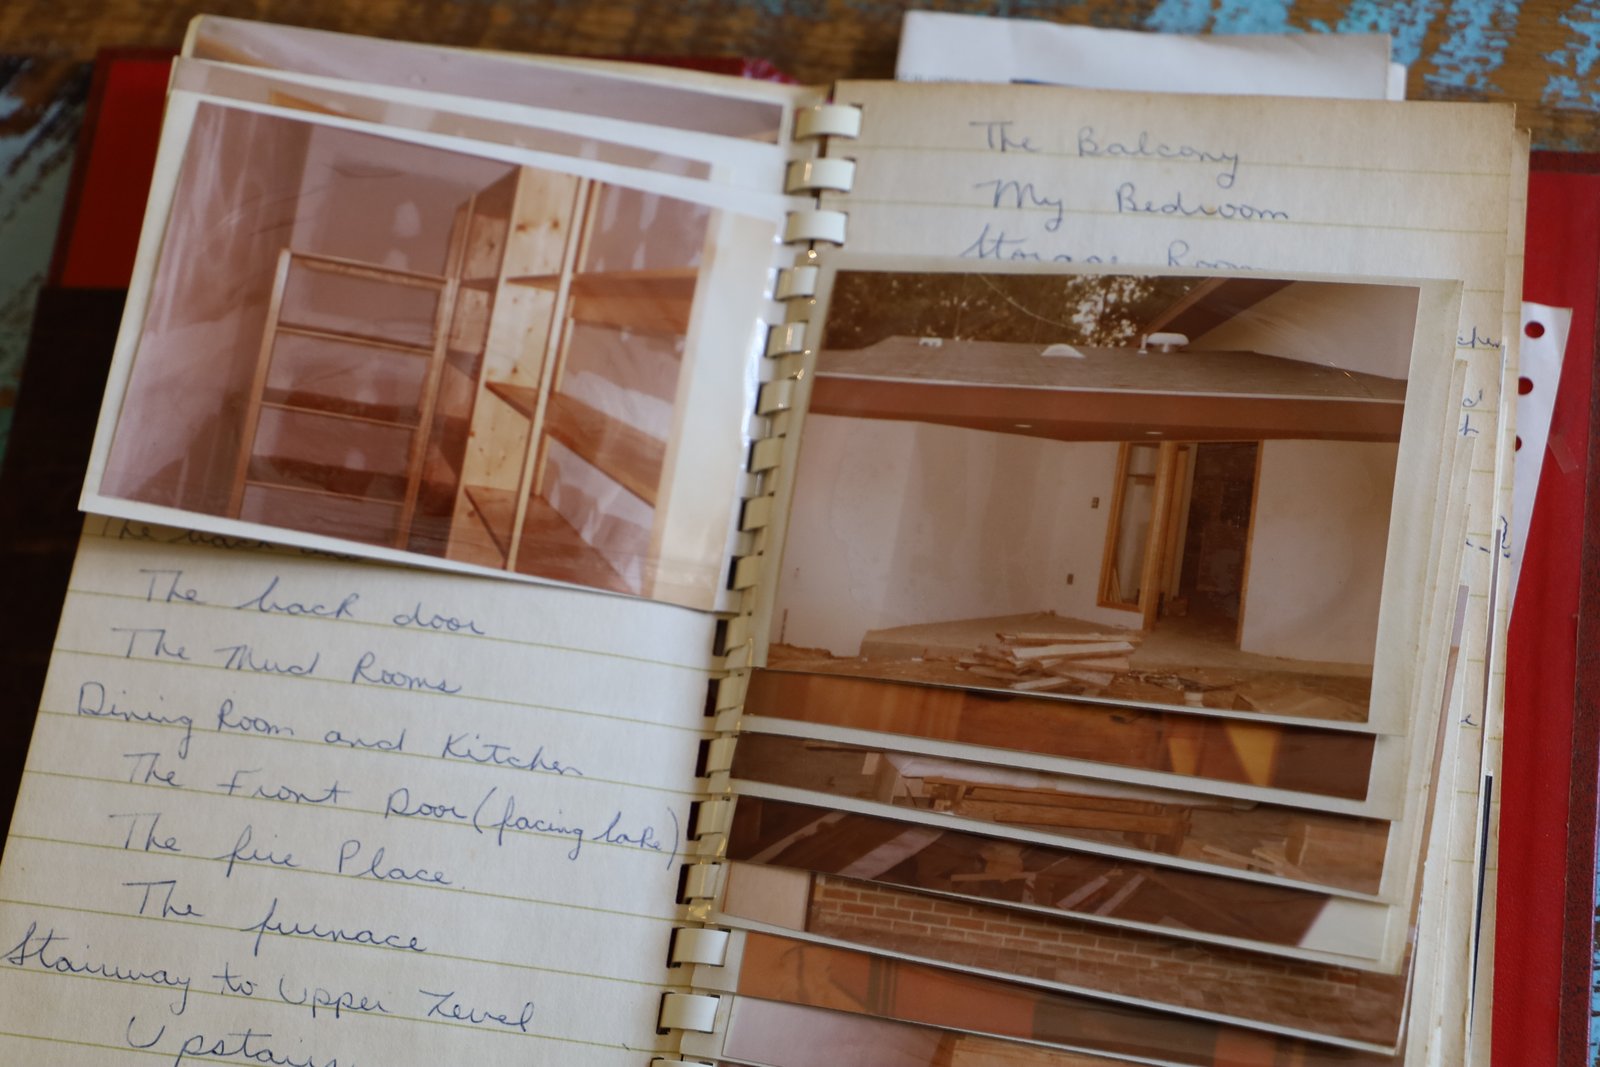 The back
The back door
The Mud Rooms
Dining Room and Kitchen
The Front Door (facing lake)
The fire Place.
The furnace
Stairway to Upper Level
Upstairs
The Balcony
My Bedroom
Storage Room